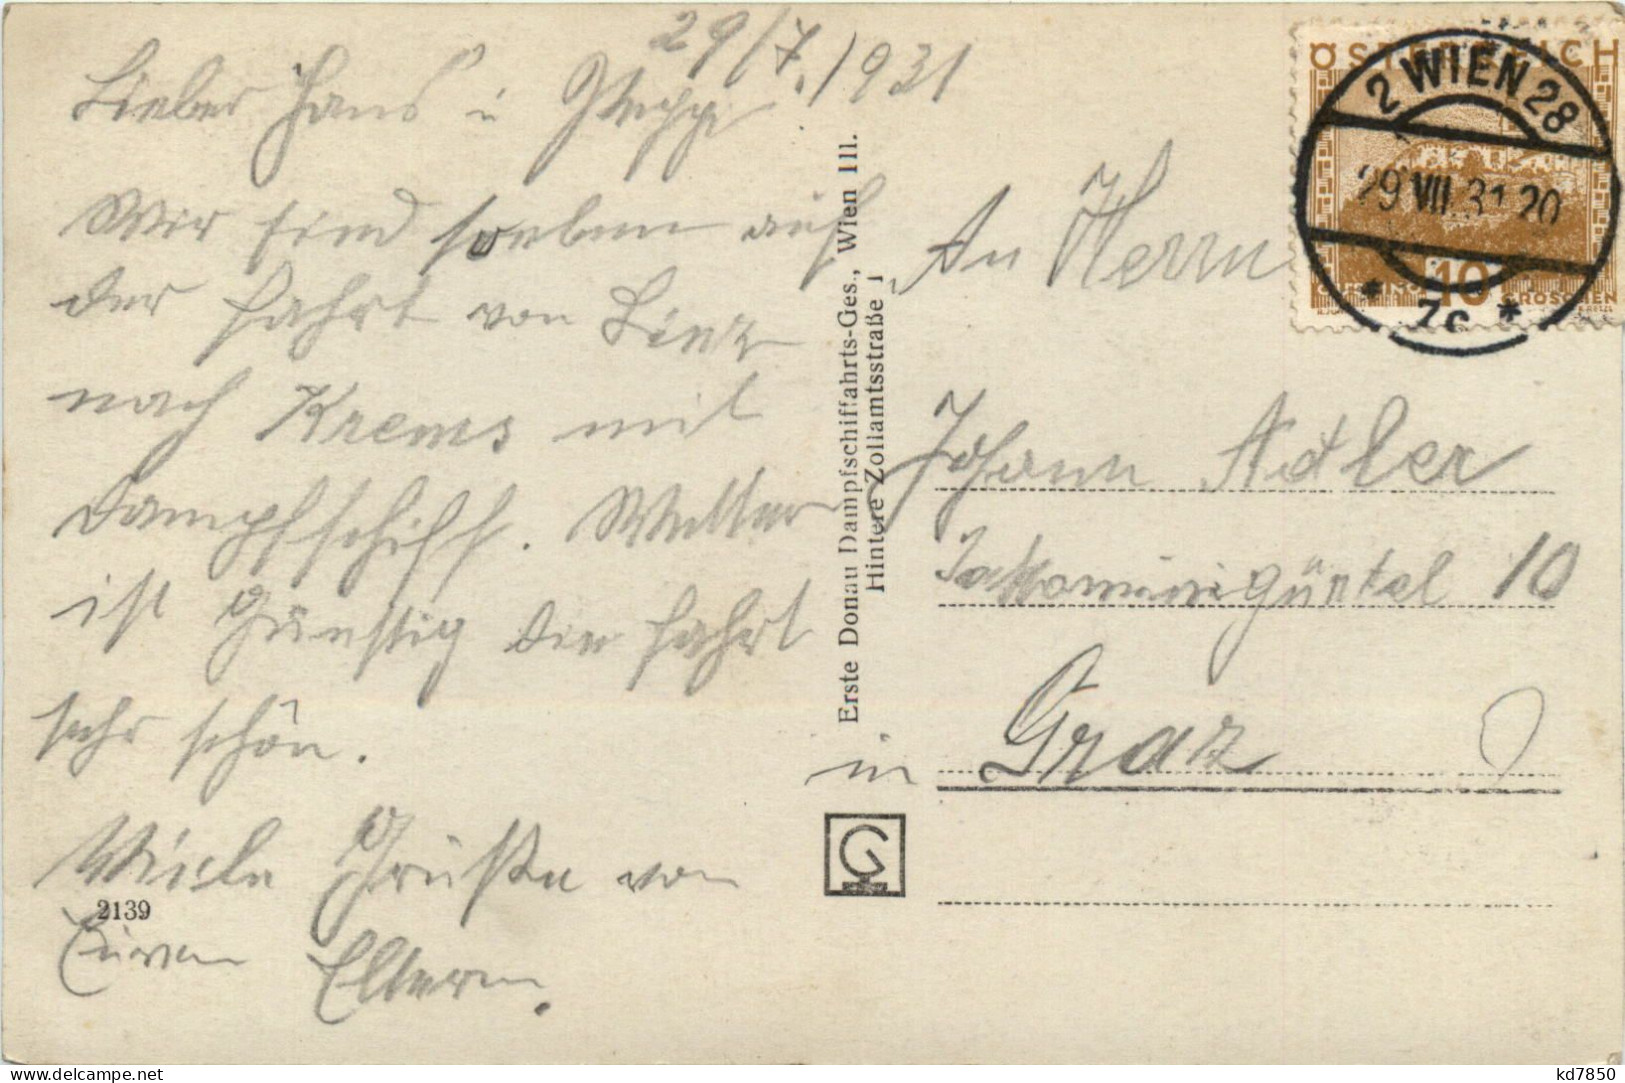 29/7./1931
Lieber Hans u
Wir sind soeben auf
der Fahrt von Linz
nach Krems mit
Dampfschiff. Wetter
ist günstig die Fahrt
sehr schön.
Viele Grüße von
Euren Eltern.
2139
Erste Donau Dampfschiffahrts-Ges., Wien III.
Hintere Zollamtsstraße 1
ÖSTERREICH
2 WIEN 28
29.VII.31.20
* 7c *
10
GÜSSING
GROSCHEN
An Herrn
Johann Adler
Jakominigürtel 10
in Graz
G
kd7850